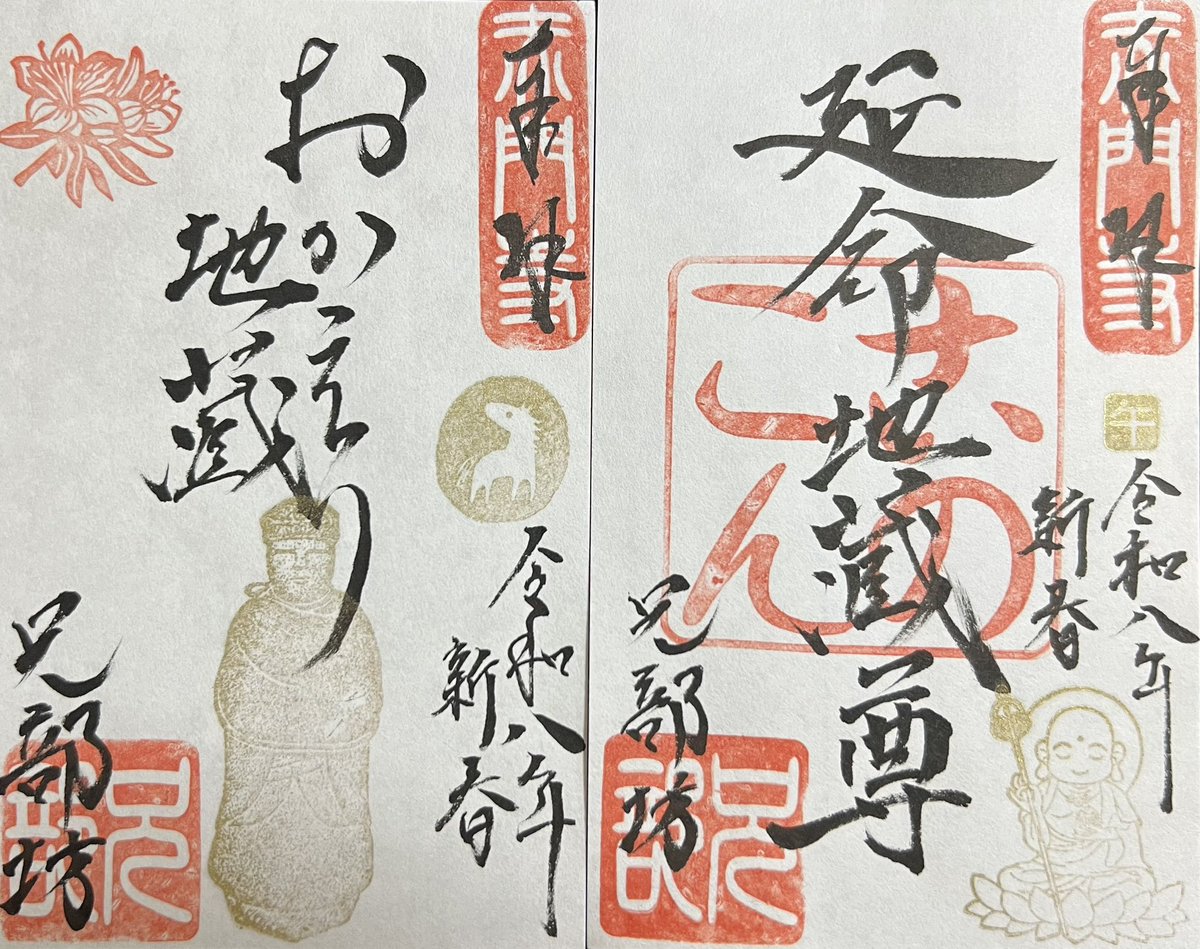 奉拝
赤門寺
午
令和八年
新春
延命地蔵尊
兄部坊
奉拝
赤門寺
令和八年
新春
おかえり
地蔵
兄部坊